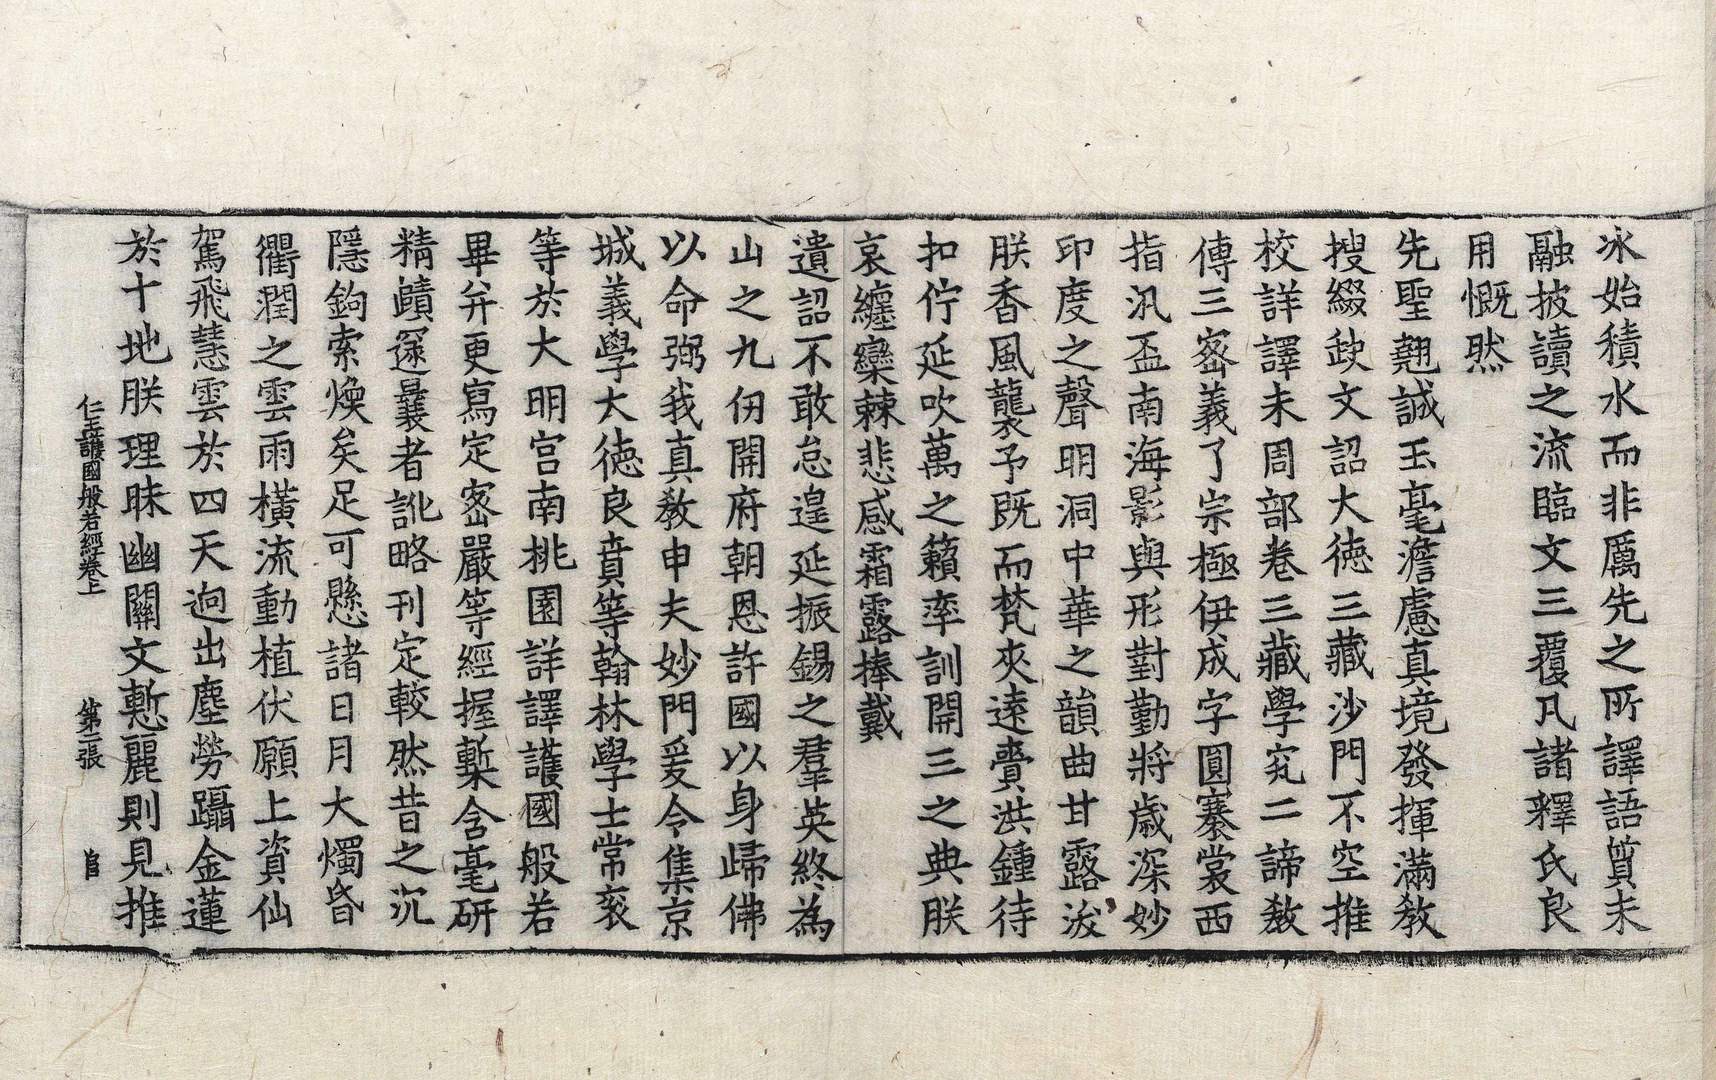 冰始積水而非厲先之所譯語質未
融披讀之流臨文三覆凡諸釋氏良
用慨然
先聖翹誠玉毫澹慮真境發揮滿教
搜綴缺文詔大德三藏沙門不空推
校詳譯未周部卷三藏學究二諦教
傳三密義了宗極伊成字圓褰裳西
指汎盃南海影與形對勤將歲深妙
印度之聲明洞中華之韻曲甘露沃
朕香風襲予既而梵夾遠賷洪鍾待
扣佇延吹萬之籟率訓開三之典朕
哀纏欒棘悲感霜露捧戴
遺詔不敢怠遑延振錫之羣英終為
山之九仞開府朝恩許國以身歸佛
以命弼我真教申夫妙門爰令集京
城義學大德良賁等翰林學士常袞
等於大明宮南桃園詳譯護國般若
畢并更寫定密嚴等經握槧含毫研
精賾邃曩者訛略刊定較然昔之沉
隱鉤索煥矣足可懸諸日月大燭昏
衢潤之雲雨橫流動植伏願上資仙
駕飛慧雲於四天迥出塵勞躡金蓮
於十地朕理昧幽關文慙麗則見推
仁王護國般若經卷上 第二張